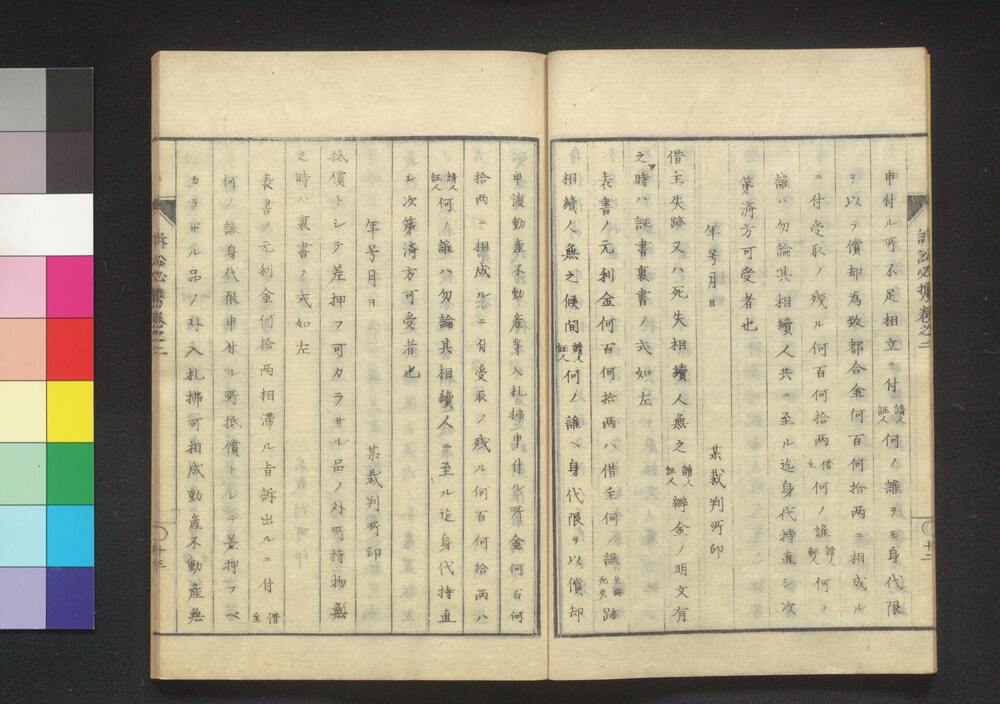 訴訟必携卷之二
申付ル所不足相立ニ付請人証人何ノ誰ヲモ身代限
ヲ以テ償却為致都合金何百何拾両ニ相成ル
ニ付受取ノ残ル何百何拾両借主何ノ誰請人証人何ノ
誰ハ勿論其相續人共ニ至ル迄身代持直シ次
第済方可受者也
年号月日　某裁判所印
借主失跡又ハ死失相續人無之請人証人辨金ノ明文有
之時ハ証書裏書ノ式如左
表書ノ元利金何百何拾両ハ借主何ノ誰失跡死失
相續人無之候間請人証人何ノ誰ヘ身代限ヲ以償却
十二
申渡動産不動産等入札拂申付ル所金何百何
拾両ニ相成ルニ付受取ノ残ル何百何拾両ハ
請人証人何ノ誰ハ勿論其相續人ニ至ル迄身代持直
シ次第済方可受者也
年号月日　某裁判所印
抵償トシテ差押フ可カラサル品ノ外所持物無
之時ハ裏書ノ式如左
表書ノ元利金何拾両相滞ル旨訴出ルニ付借主
何ノ誰身代限申付ル所抵償トシテ差押フベ
カラザル品ノ外入札拂可相成動産不動産無
訴訟必携卷之二
十三